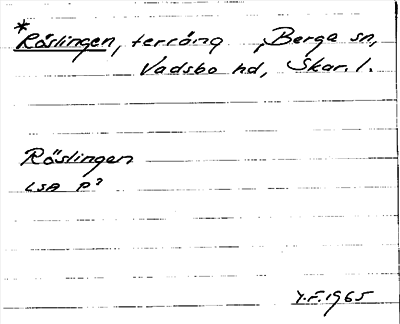 *
Röslingen, terräng , Berga sn,
Vadsbo hd, Skar. l.
Röslingen
LSA P³
Y.F. 1965